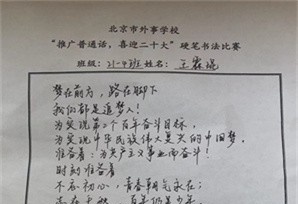 北京市外事学校
“推广普通话，喜迎二十大”硬笔书法比赛
班级：21-4班 姓名：王霖琨
梦在前方，路在脚下
我们都是追梦人！
为实现第二个百年奋斗目标，
为实现中华民族伟大复兴的中国梦。
准备着：为共产主义事业而奋斗！
时刻准备着
不忘初心，青春朝气永在；
志在千秋，百年仍是少年。